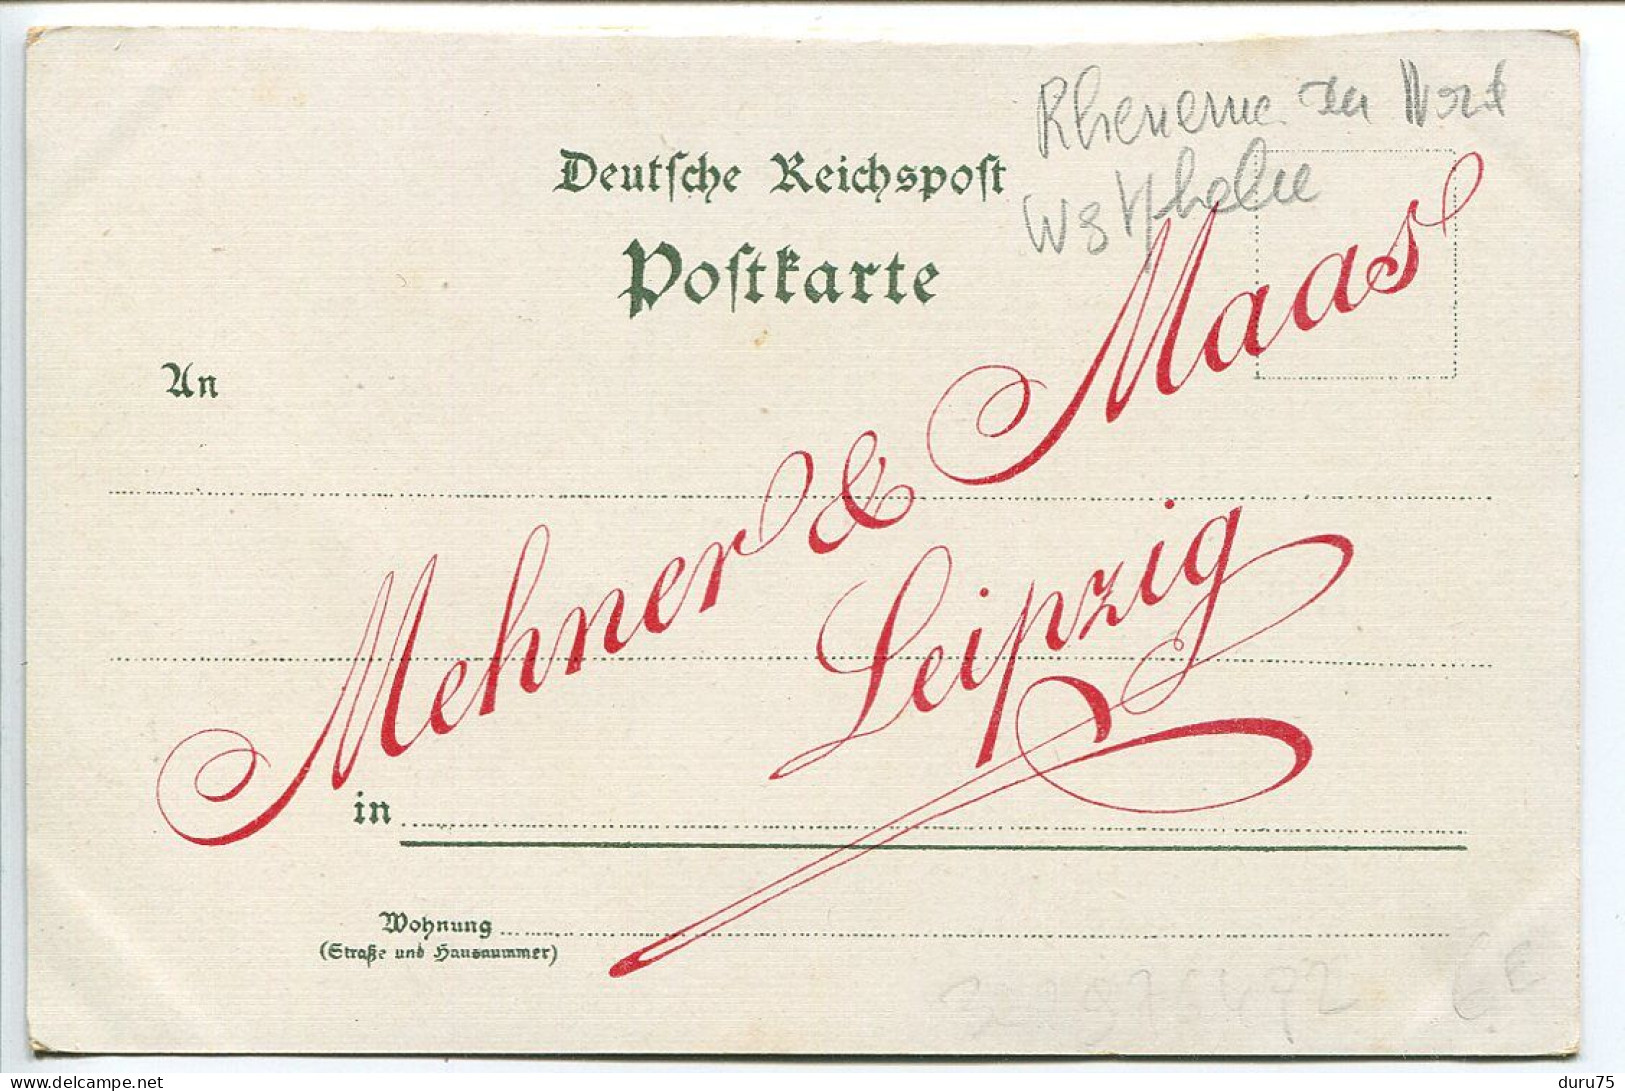 Rhenerne du Nord
Westphalie
Deutsche Reichspost
Postkarte
An
Mehner & Maas
Leipzig
in
Wohnung
(Straße und Hausnummer)
6 E
delcampe.net
duru75